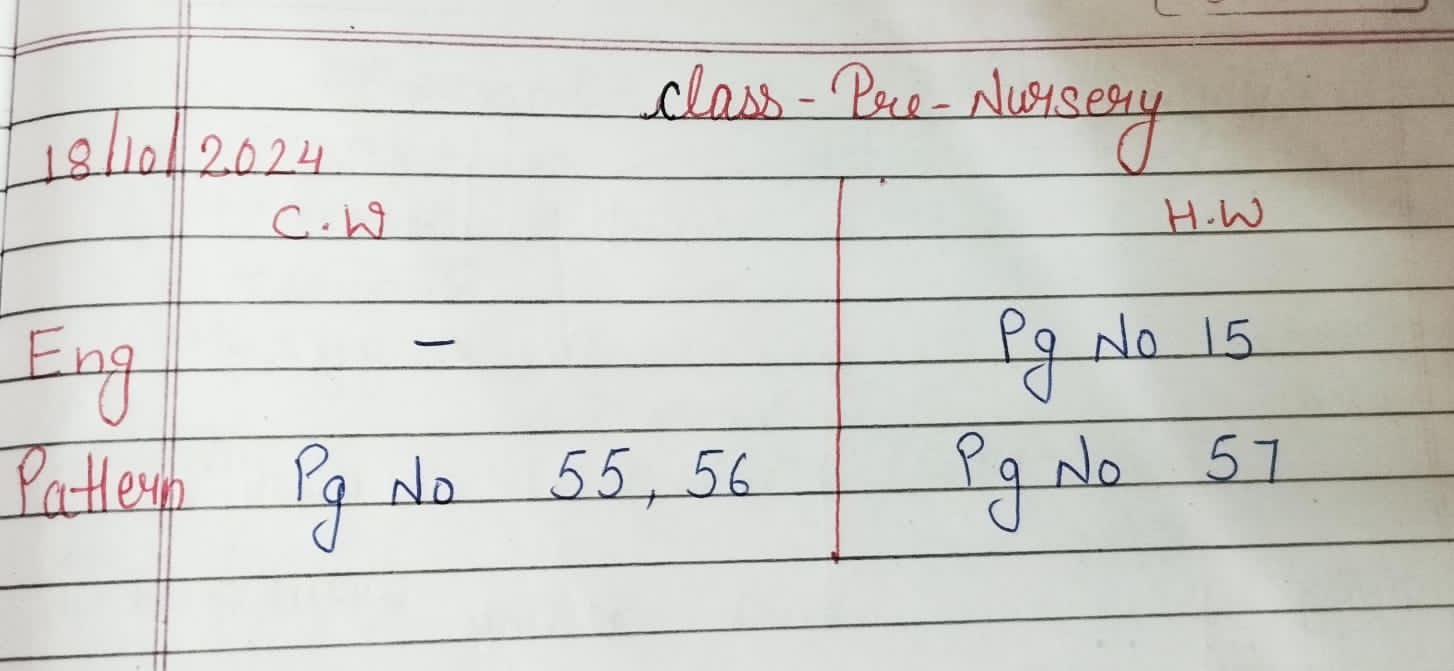 class - Pre - Nursery
18/10/2024
C.W H.W
Eng - Pg No 15
Pattern Pg No 55, 56 Pg No 57